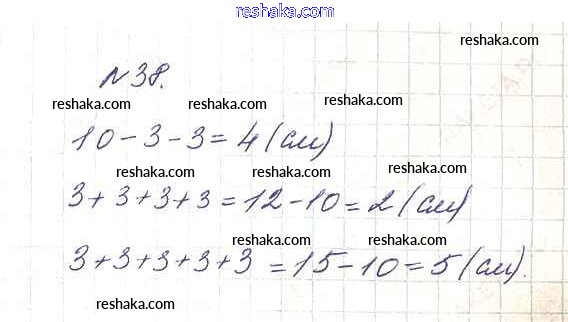 reshaka.com
reshaka.com
№38.
reshaka.com reshaka.com reshaka.com
10-3-3=4(см)
reshaka.com reshaka.com reshaka.com
3+3+3+3=12-10=2(см)
reshaka.com reshaka.com
3+3+3+3+3=15-10=5(см).
reshaka.com